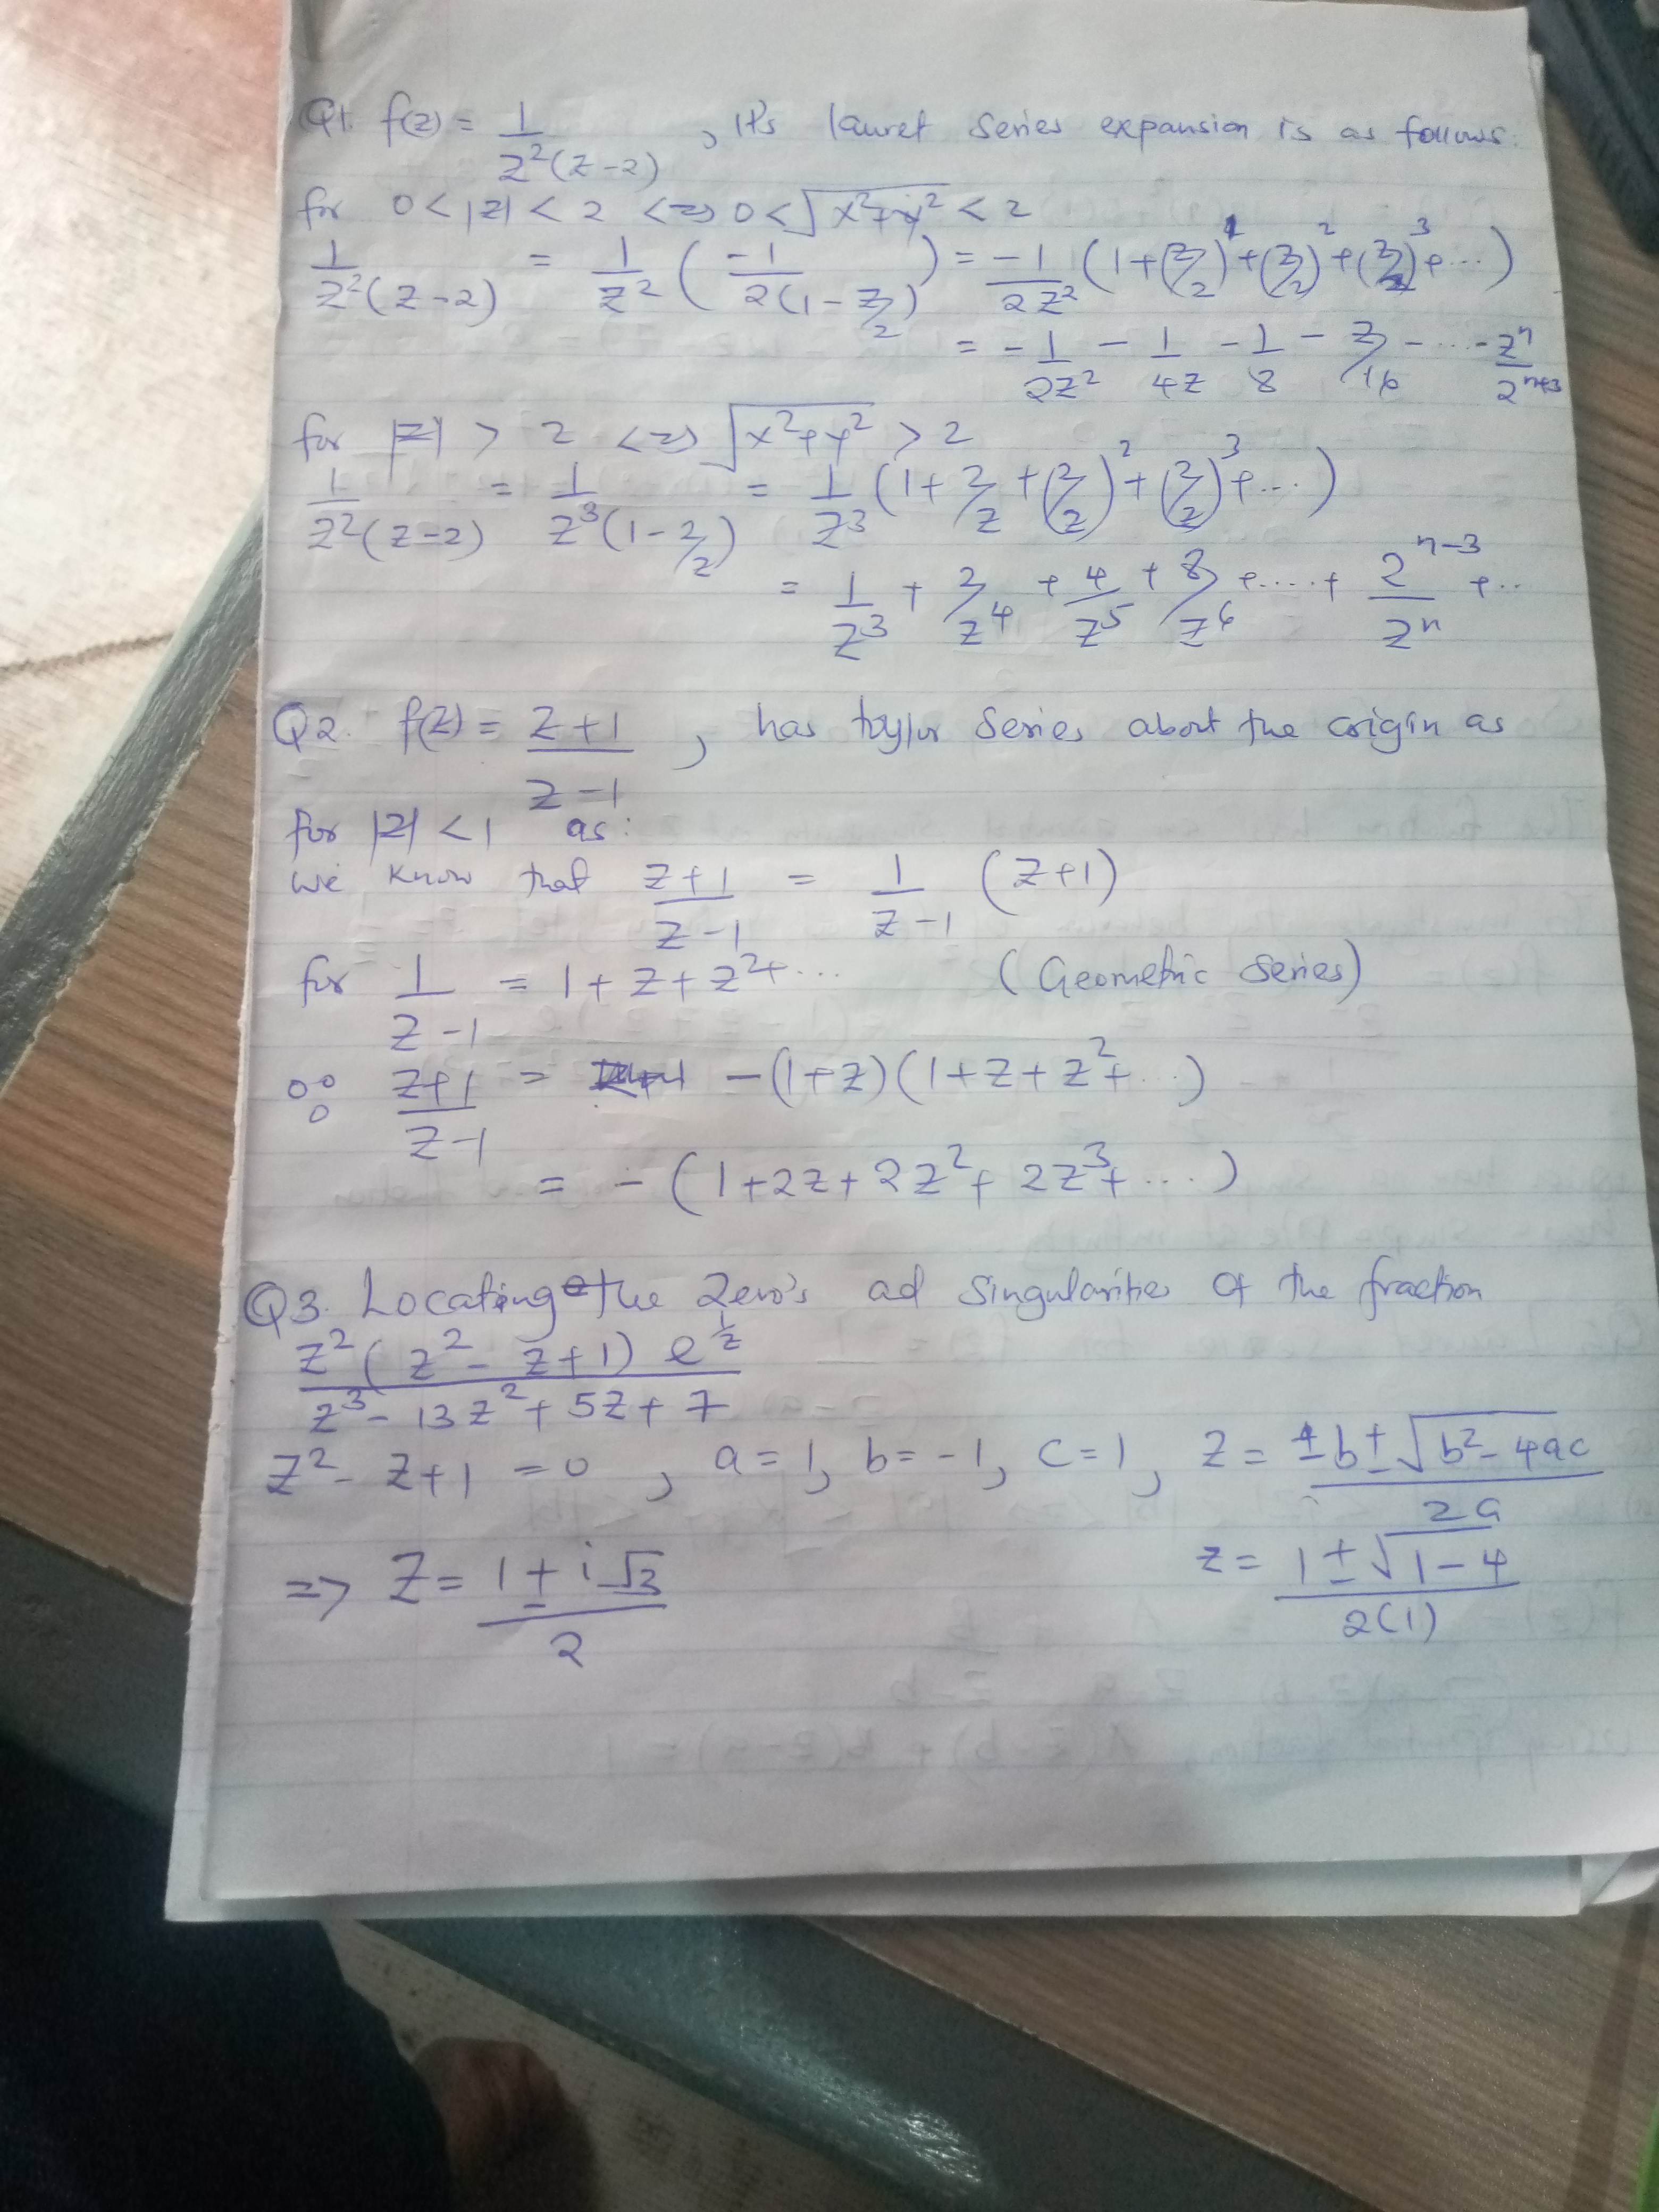 Q1. f(z) = 1/z²(z-2) , it's lauret series expansion is as follows:
for 0 < |z| < 2 <=> 0 < √x²+y² < 2
1/z²(z-2) = 1/z² (-1/2(1-z/2)) = -1/2z² (1+(z/2)¹+(z/2)²+(z/2)³+...)
= -1/2z² - 1/4z - 1/8 - z/16 - ... - zⁿ/2ⁿ⁺³
for |z| > 2 <=> √x²+y² > 2
1/z²(z-2) = 1/z³(1-2/z) = 1/z³ (1+2/z+(2/z)²+(2/z)³+...)
= 1/z³ + 2/z⁴ + 4/z⁵ + 8/z⁶ +....+ 2ⁿ⁻³/zⁿ +..
Q2. f(z) = z+1/z-1 , has taylor series about the origin as
for |z| < 1 as:
we know that z+1/z-1 = 1/z-1 (z+1)
for 1/z-1 = 1+z+z²+... (Geometric series)
∴ z+1/z-1 = -(1+z)(1+z+z²+...)
= -(1+2z+2z²+2z³+...)
Q3. Locating the Zero's ad singularities of the fraction
z²(z²-z+1) e^1/z / z³-13z²+5z+7
z²-z+1 = 0 , a=1, b=-1, c=1, z = ±b±√b²-4ac/2a
=> z = 1±i√3/2 z = 1±√1-4/2(1)